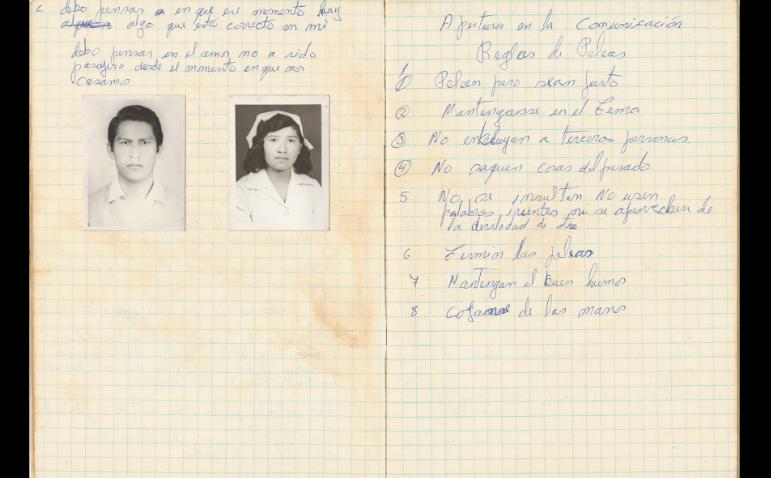 2 debo pensar en que ese momento hay
algo que esta correcto en mi
debo pensar en el amor no a sido
pasajero desde el momento en que nos
casamos
Apertura en la Comunicación
Reglas de Peleas
1 Peleen pero sean justo
2 Mantenganse en el tema
3 No enkluyan a terceras personas
4 No saquen cosas del pasado
5 No se insulten No usen
palabras ni se aprovechen de
la devilidad de
6 Termin las peleas
7 Mantengan el buen humor
8 de las manos